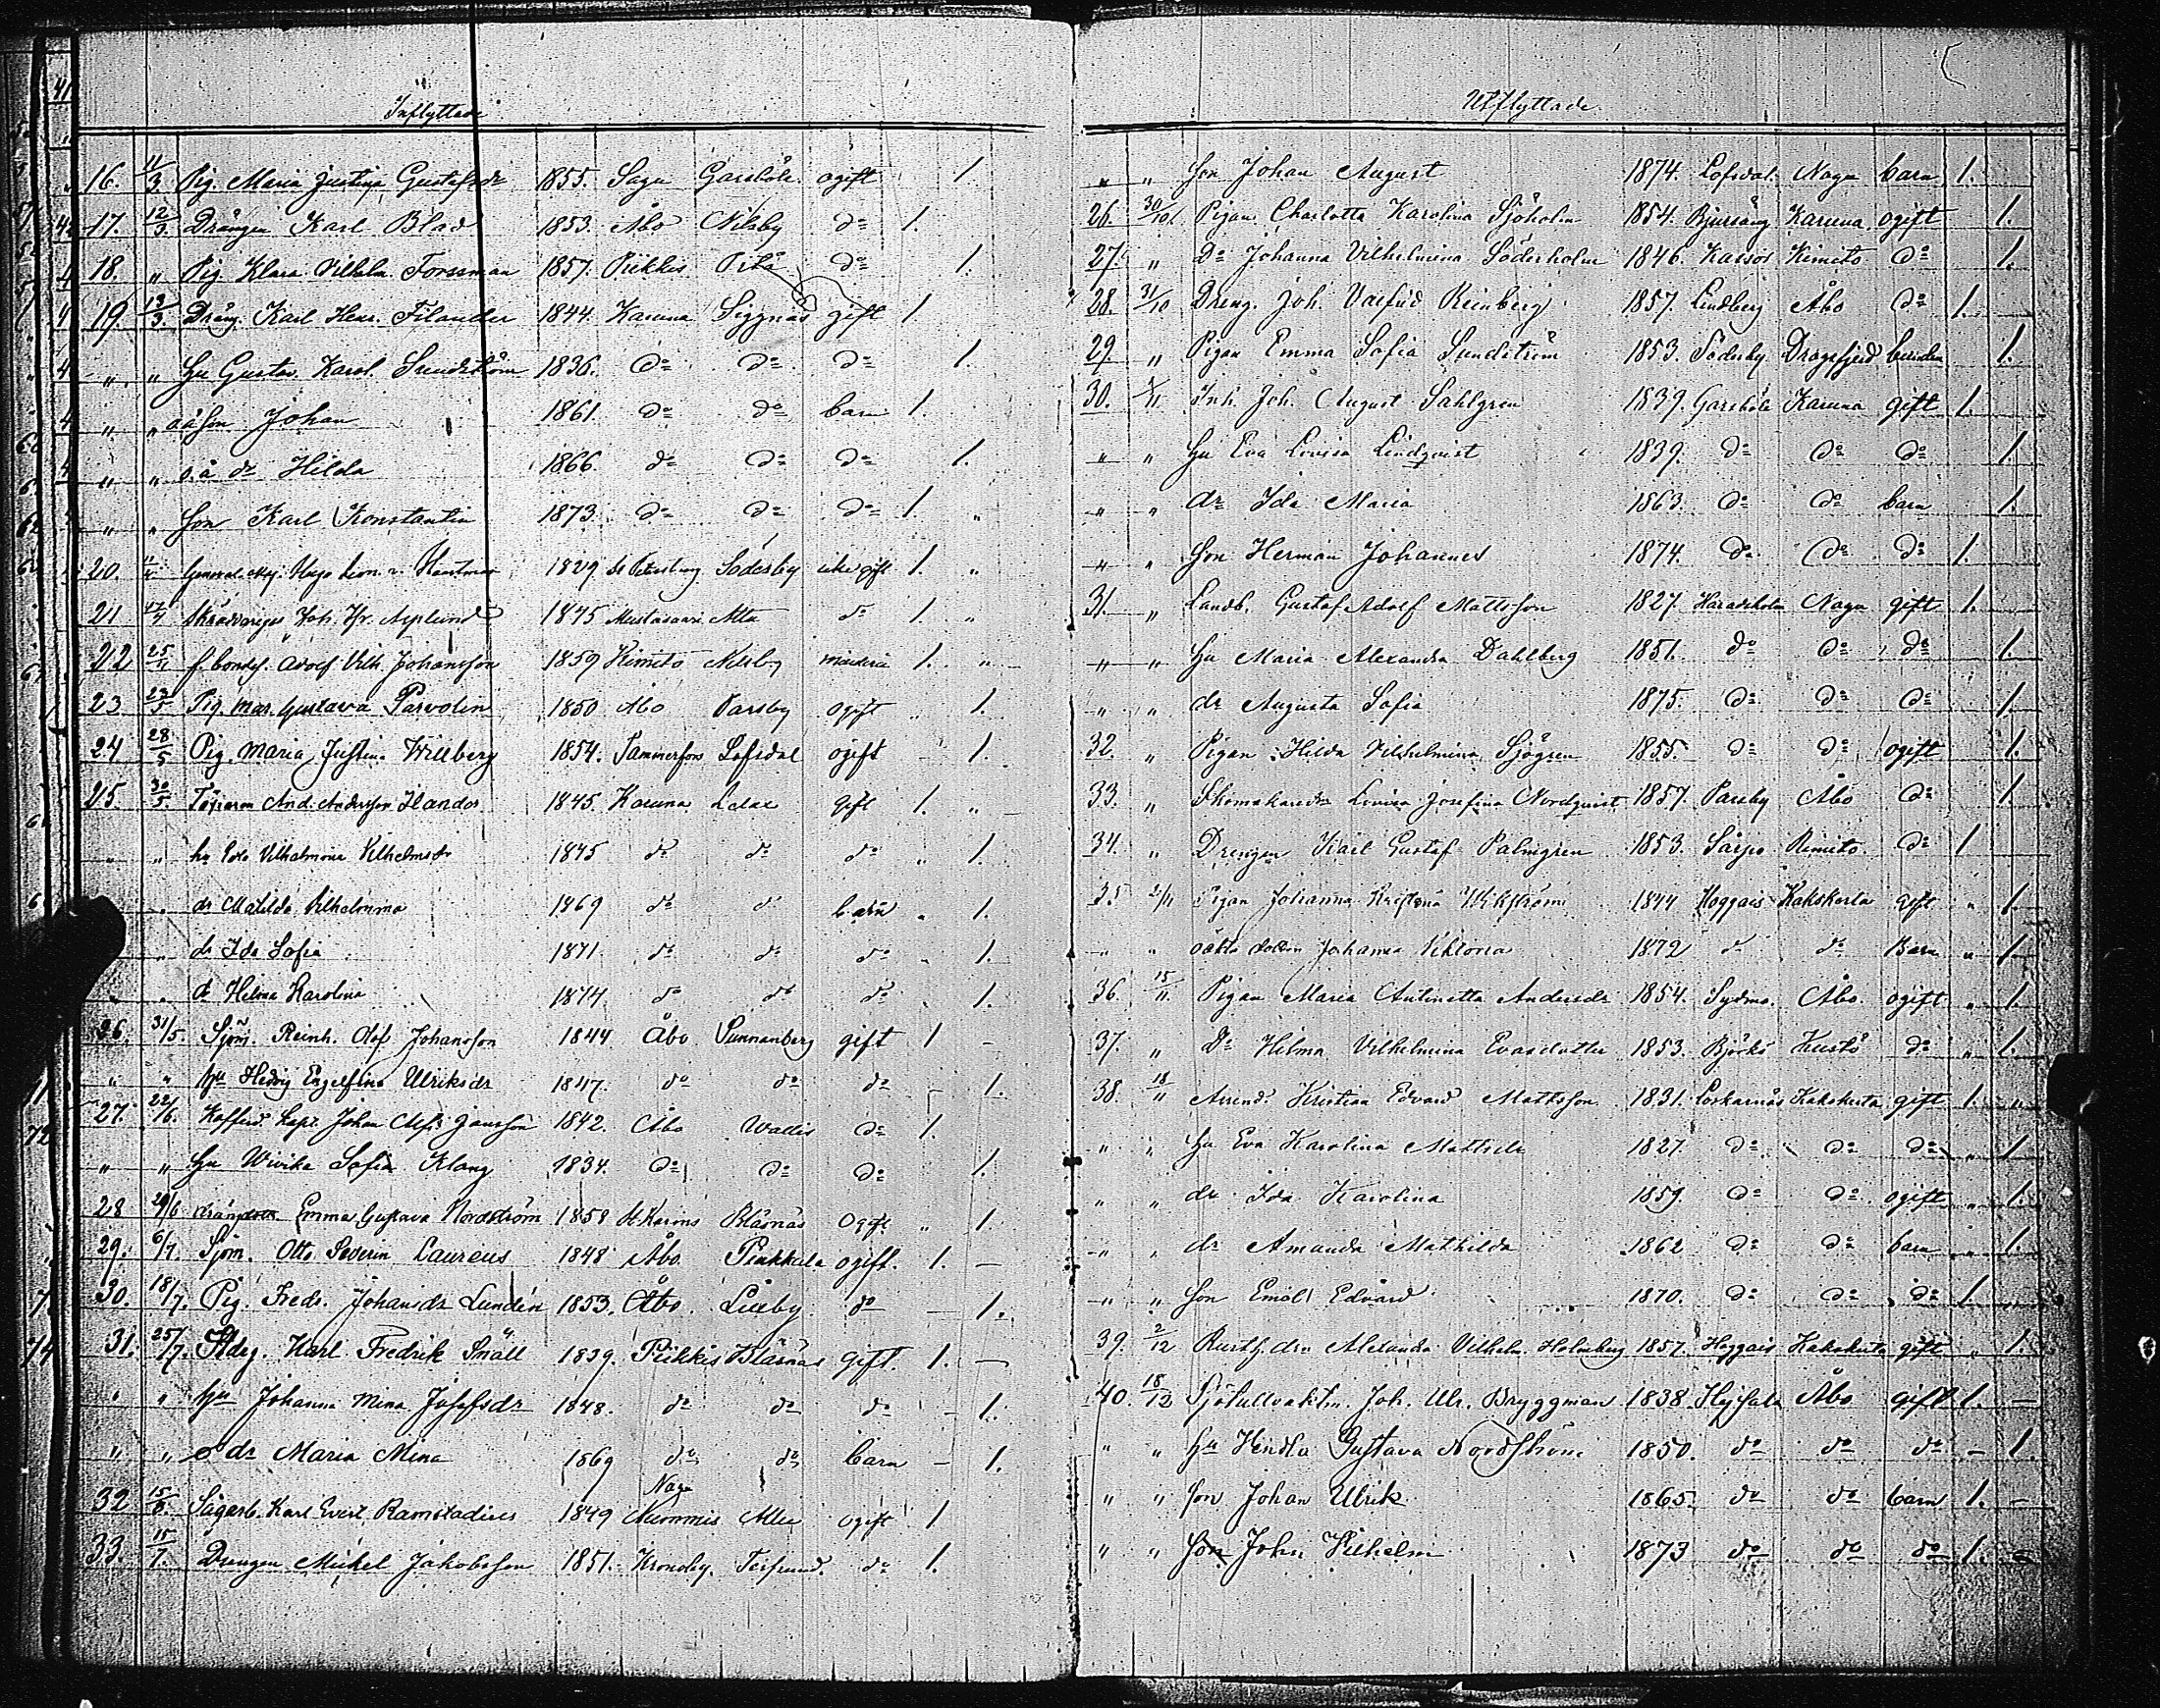 Inflyttade
16. 11/3 Pig. Maria Justina Gustafsdr 1855. Sagu Garsböle ogift 1
17. 12/3 Drängen Karl Blad 1853. Åbo Nilsby do 1.
18. " Pig. Klara Vilhelm. Forssman 1857. Piikkis do 1.
19 13/3. Dräng. Karl Henr. Filander 1844. Karuna Siggnäs gift 1
" " Hu Gustav. Karol. Sundström 1836. do do do 1.
" " oä Son Johan 1861. do do barn 1.
" " o.ä dr Hilda 1866. do do do 1.
" " Son Karl Konstantin 1873. do do do 1. "
20. General Maj. Hugo 1829. St Petersburg Söderby icke gift 1. "
21 Joh. Asplund 1845 Mustasaari Atta do 1.
22 Adolf Vilh. Johansson 1859 Kimito Nilsby 1. "
23 23/5 Pig. Mar. Gustava Parvolin 1850 Åbo Parsby ogift " 1.
24 28/5 Pig. Maria Justina Willberg 1854. Tammerfors Lofsdal ogift - 1.
25. 30/5. And. Andersson Flander 1845. Karuna gift 1. "
" " hu Vilhelmina Vilhelmsdr 1845 do do do " 1.
" dr Matilda Vilhelmina 1869 do d barn " 1.
" dr Ida Sofia 1871 do do do " 1.
" " dr Helena Karolina 1874 do do do " 1.
26. 31/5. Sjöm. Reinh. Olof Johansson 1844 Åbo Sunnanberg gift 1 -
" " Hu Hedvig Engelfina Ulriksdr 1847. do do do - 1.
27. 22/6. Koffardi Kapt. Johan Alfr. Jansson 1842. Åbo Wallis do 1.
" " Hu Wivika Sofia Klang 1834. do do do 1.
28 29/6 Emma Gustava Nordström 1858 St Karins Bläsnäs ogift " 1.
29. 6/7. Sjöm. Otto Severin Laurens 1848 Åbo ogift. 1. -
30. 18/7. Pig. Fredr. Johansdr Lundén 1853. Åbo. Lielby do - 1.
31. 25/7. Karl Fredrik Småll 1839. Piikkis Bläsnäs gift. 1. -
" " Hu Johanna Mina Josefsdr 1848. do do do - 1.
" " dr Maria Mina 1869 do do barn - 1.
Nagu
32 15/8. Sågarb. Karl Evert Ramstadius 1849 Nummis ogift 1
33. 15/7. Drengen Mickel Jakobsson 1851. Kronoby. do 1.
Utflyttade
" " Son Johan August 1874. Lofsdal Nagu barn 1.
26. 30/10. Pigan Charlotta Karolina Sjöholm 1854. Karuna ogift 1.
27. " Do Johanna Vilhelmina Söderholm 1846. Kassor Kimito do 1.
28. 31/10 Dreng. Joh. Valfrid Reinberg 1857. Lindberg Åbo do 1.
29. " Pigan Emma Sofia Sundström 1853. Söderby Dragsfjerd 1.
30. Inh. Joh. August Sahlgren 1839. Garsböle Karuna gift 1.
" " Hu Eva Lovisa Lindqvist 1839. do do do 1.
" " dr Ida Maria 1863. do do barn 1.
" " Son Herman Johannes 1874. do do do 1.
31. " Landb. Gustaf Adolf Mattsson 1827. Haradsholm Nagu gift 1.
" " Hu Maria Alexandra Dahlberg 1851. do do do 1.
" " dr Augusta Sofia 1875. do do do 1.
32. " Pigan Hilda Vilhelmina Sjögren 1855. do do ogift 1.
33. " Skomakaredr Lovisa Josefina Nordqvist 1857. Parsby Åbo do 1.
34. " Drengen Karl Gustaf Palmgren 1853. Sarpo Rimito do 1
35 2/11 Pigan Johanna Kristina Wikström 1844 Hoggais Kakskerta gift. " 1.
" " oäkta dottern Johanna Viktoria 1872 d do Barn " 1.
36. 15/11. Pigan Maria Antinetta Andersdr 1854. Sydmo. Åbo ogift " 1.
37. " Do Hilma Vilhelmina Evasdotter 1853. Björkö Kustö do " 1.
38. 18/11 Arrend. Kristian Edvard Mattsson 1831. Loskarnäs Kakskerta gift 1. "
" " Hu Eva Karolina Mattsdr 1827. do do do " 1.
" " dr Ida Karolina 1859. do do ogift " 1.
" " dr Amanda Mathilda 1862 do do barn " 1.
" " Son Emil Edvard 1870. do do do 1.
39. 2/12 Rusth. dr Alexandra Vilhelm. Holmberg 1857. Hoggais Kakskerta gift " 1.
40. 18/12 Sjötullvaktm. Joh. Ulr. Bryggman 1838. Hejsala Åbo gift 1. -
" " Hu Hindla Gustava Nordström 1850. do do do - 1.
" " Son Johan Ulrik 1865. do do barn 1. -
" " Son John Vilhelm 1873 do do do 1. -